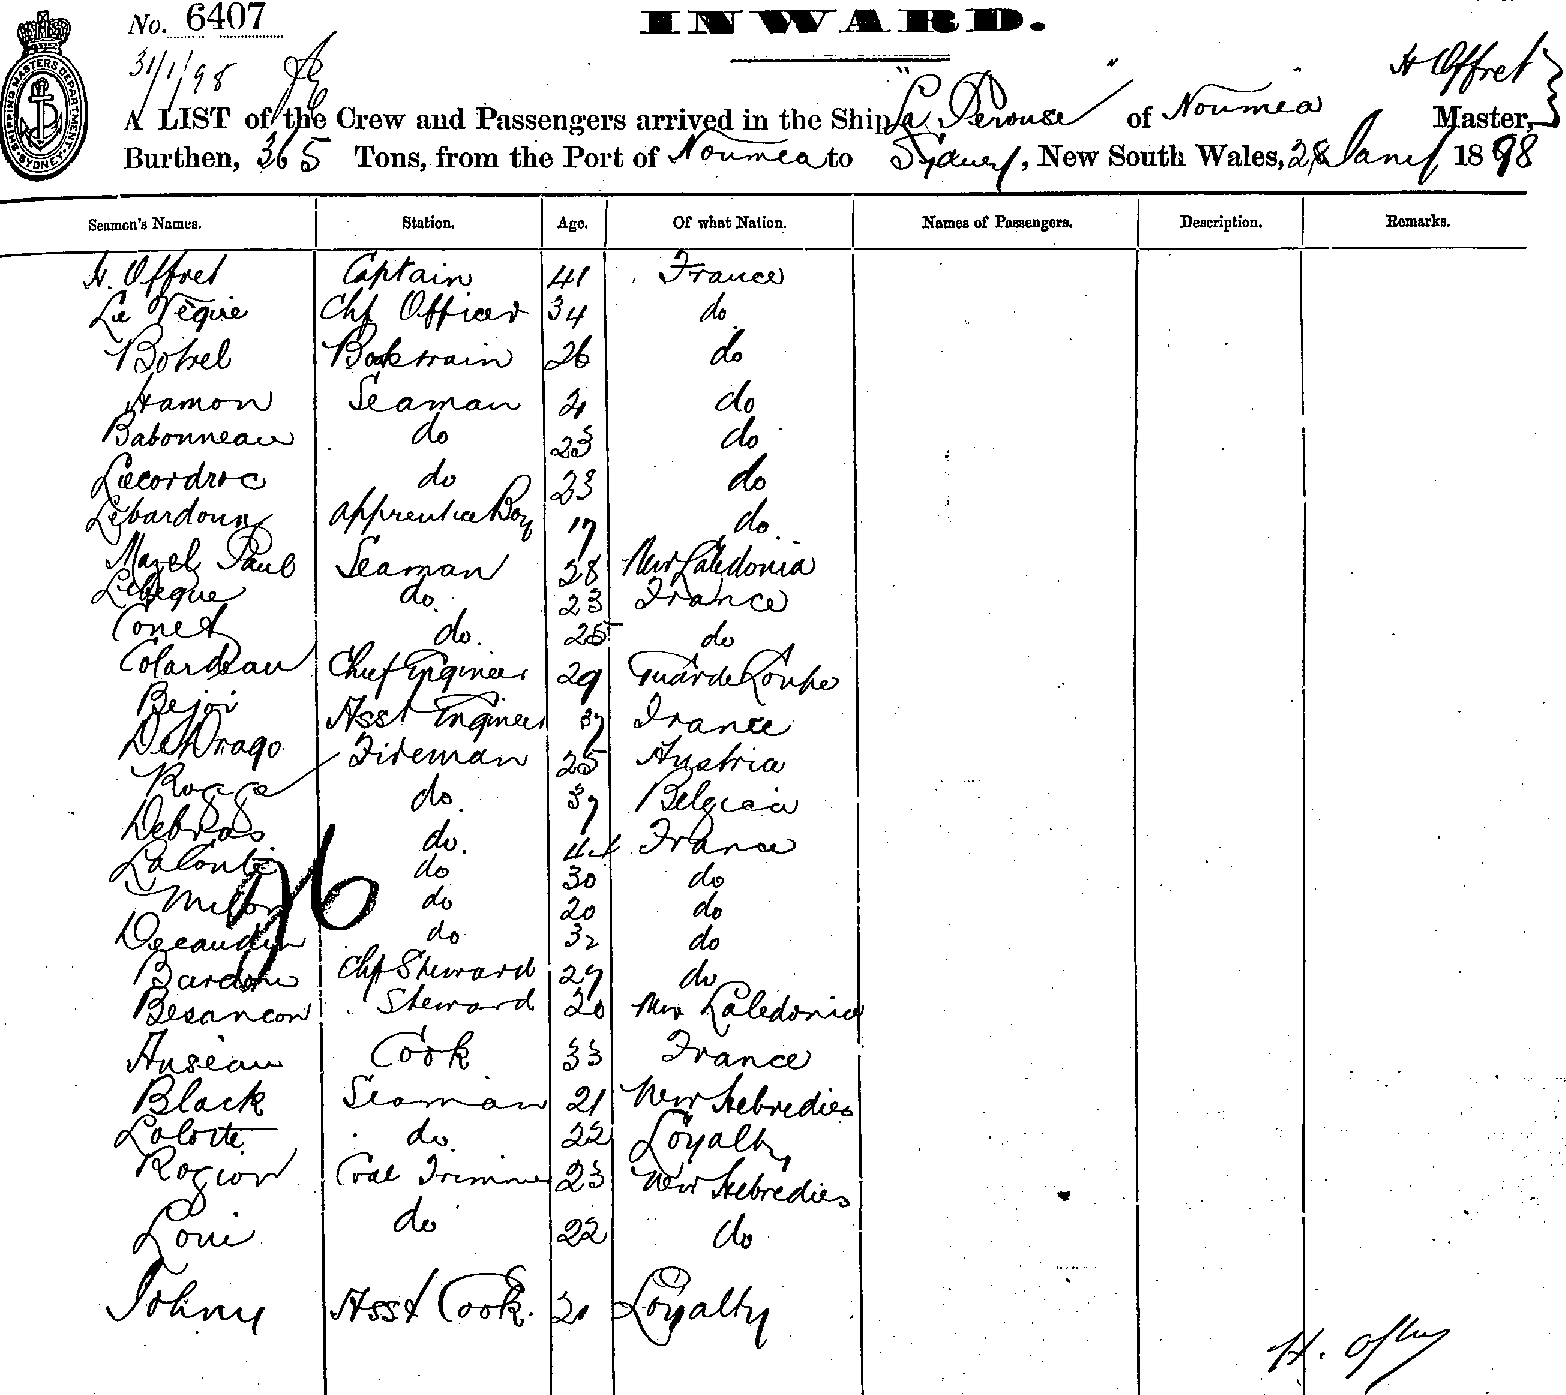 No. 6407
INWARD.
31/1/98
"La Perouse" of Noumea H Offret
A LIST of the Crew and Passengers arrived in the Ship of Master,
Burthen, 365 Tons, from the Port of Noumea to Sydney, New South Wales, 28 Jany 1898
SHIPPING MASTERS DEPARTMENT SYDNEY
Seamen's Names. Station. Age. Of what Nation. Names of Passengers. Description. Remarks.
H. Offret Captain 41 France
Le Vêque Chf Officer 34 do
Botrel Boatswain 26 do
Hamon Seaman 21 do
Babonneau do 23 do
Lecordroc do 23 do
Apprentice Boy 17 do
Mazel Paul Seaman 28 New Caledonia
do 23 France
Conet do. 25 do
Colardeau Chief Engineer 29 Guardeloupe
Bejoi Asst Engineer 37 France
Del Drago Fireman 25 Austria
Rogge do 37 Belgica
Debras do. 44 France
Laconte do 30 do
do 20 do
Decaudin do 32 do
96
Bardon Chf Steward 27 do
Besancon Steward 20 New Caledonia
Anseau Cook 33 France
Black Seaman 21 New Hebredies
Lalotte do 22 Loyalty
Rogion Coal Trimmer 23 New Hebredies
Loui do 22 do
Johny Asst Cook. 20 Loyalty
H. Offret